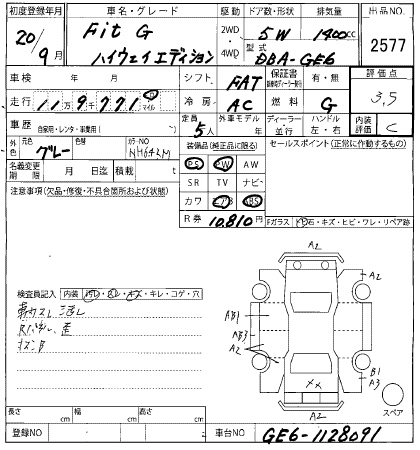 初度登録年月
車名・グレード
駆動
ドア数・形状
排気量
出品NO.
20年
9月
Fit G
ハイウェイエディション
2WD
4WD
5W
1400cc
型式
DBA-GE6
2577
車検 年 月
シフト
FAT
保証書
有・無
評価点
3,5
走行 11万9千771
マイル
冷房
AC
燃料
G
車歴
自家用・レンタ・事業用
定員
5人
外車モデル
年
ディーラー・並行
ハンドル
左・右
内装評価
C
外色
元色
グレー
色替
カラーNO
NH643M
装備品(純正品に限る)
セールスポイント(正常に作動するもの)
名義変更期限
月 日迄
積載
PS PW AW
SR TV ナビ
カワ エアB ABS
注意事項(欠品・修復・不具合箇所および状態)
R券 10,810円
Fガラス
石・キズ・ヒビ・ワレ・リペア跡
検査員記入
内装
汚レ・スレ・キズ・キレ・コゲ・穴
A2
A2
AB1
AB3
A2
B1
A3
A2
スペア
長さ cm
幅 cm
高さ cm
登録NO
車台NO
GE6-1128091